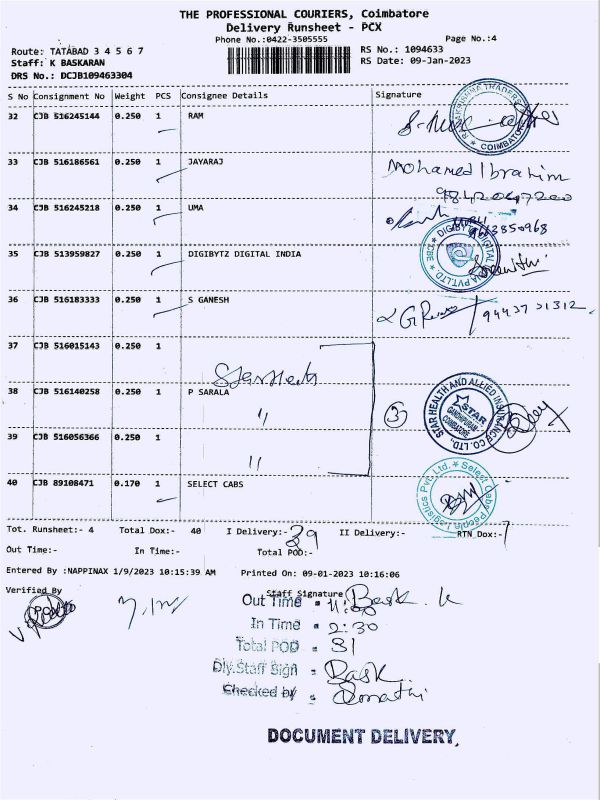 THE PROFESSIONAL COURIERS, Coimbatore
Delivery Runsheet - PCX
Phone No.:0422-3505555 Page No.:4
Route: TATABAD 3 4 5 6 7 RS No.: 1094633
Staff: K BASKARAN RS Date: 09-Jan-2023
DRS No.: DCJB109463304
S No Consignment No Weight PCS Consignee Details Signature
32 CJB 516245144 0.250 1 RAM
COIMBATORE
33 CJB 516186561 0.250 1 JAYARAJ Mohamed Ibrahim
9842047200
34 CJB 516245218 0.250 1 UMA
9663850968
35 CJB 513959827 0.250 1 DIGIBYTZ DIGITAL INDIA
36 CJB 516183333 0.250 1 S GANESH 9443731312
37 CJB 516015143 0.250 1
Star Health
38 CJB 516140258 0.250 1 P SARALA
" 3 STAR HEALTH AND ALLIED INSURANCE CO. LTD. STAR GANDHIPURAM COIMBATORE
39 CJB 516056366 0.250 1
"
40 CJB 89108471 0.170 1 SELECT CABS Select Cabs People Logistics Pvt. Ltd.
Tot. Runsheet:- 4 Total Dox:- 40 I Delivery:- 39 II Delivery:- RTN_Dox:- 1
Out Time:- In Time:- Total POD:-
Entered By :NAPPINAX 1/9/2023 10:15:39 AM Printed On: 09-01-2023 10:16:06
Verified By Staff Signature Bask. K
Out Time = 11:00
In Time = 2:30
Total POD = 31
Dly.Staff Sign = Bask.
Checked by =
DOCUMENT DELIVERY,